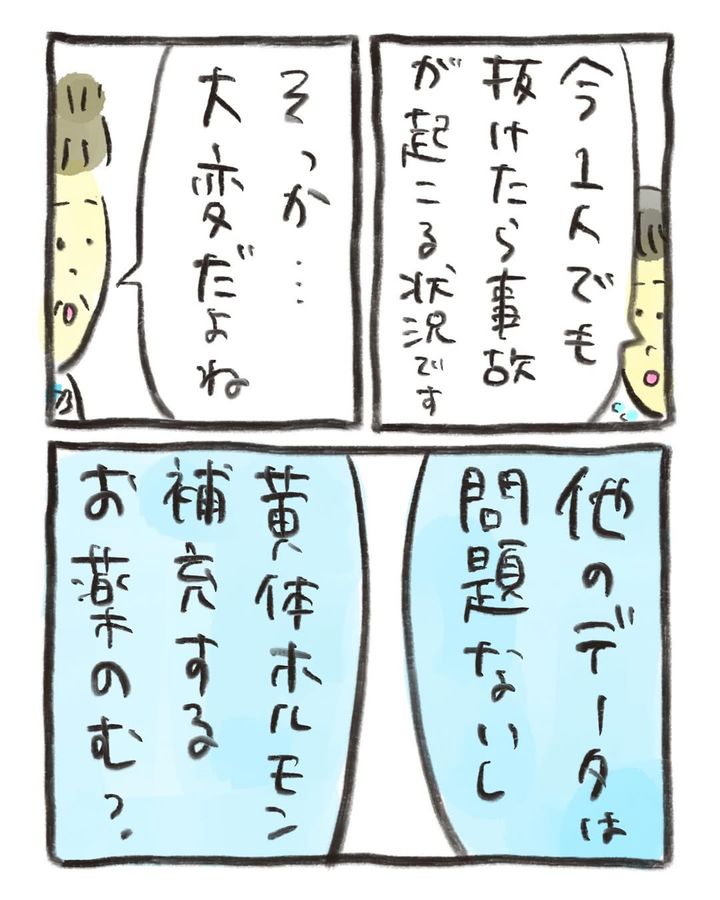 今1人でも
抜けたら事故
が起こる状況です
そっか…
大変だよね
他のデータは
問題ないし
黄体ホルモン
補充する
お薬のむ?